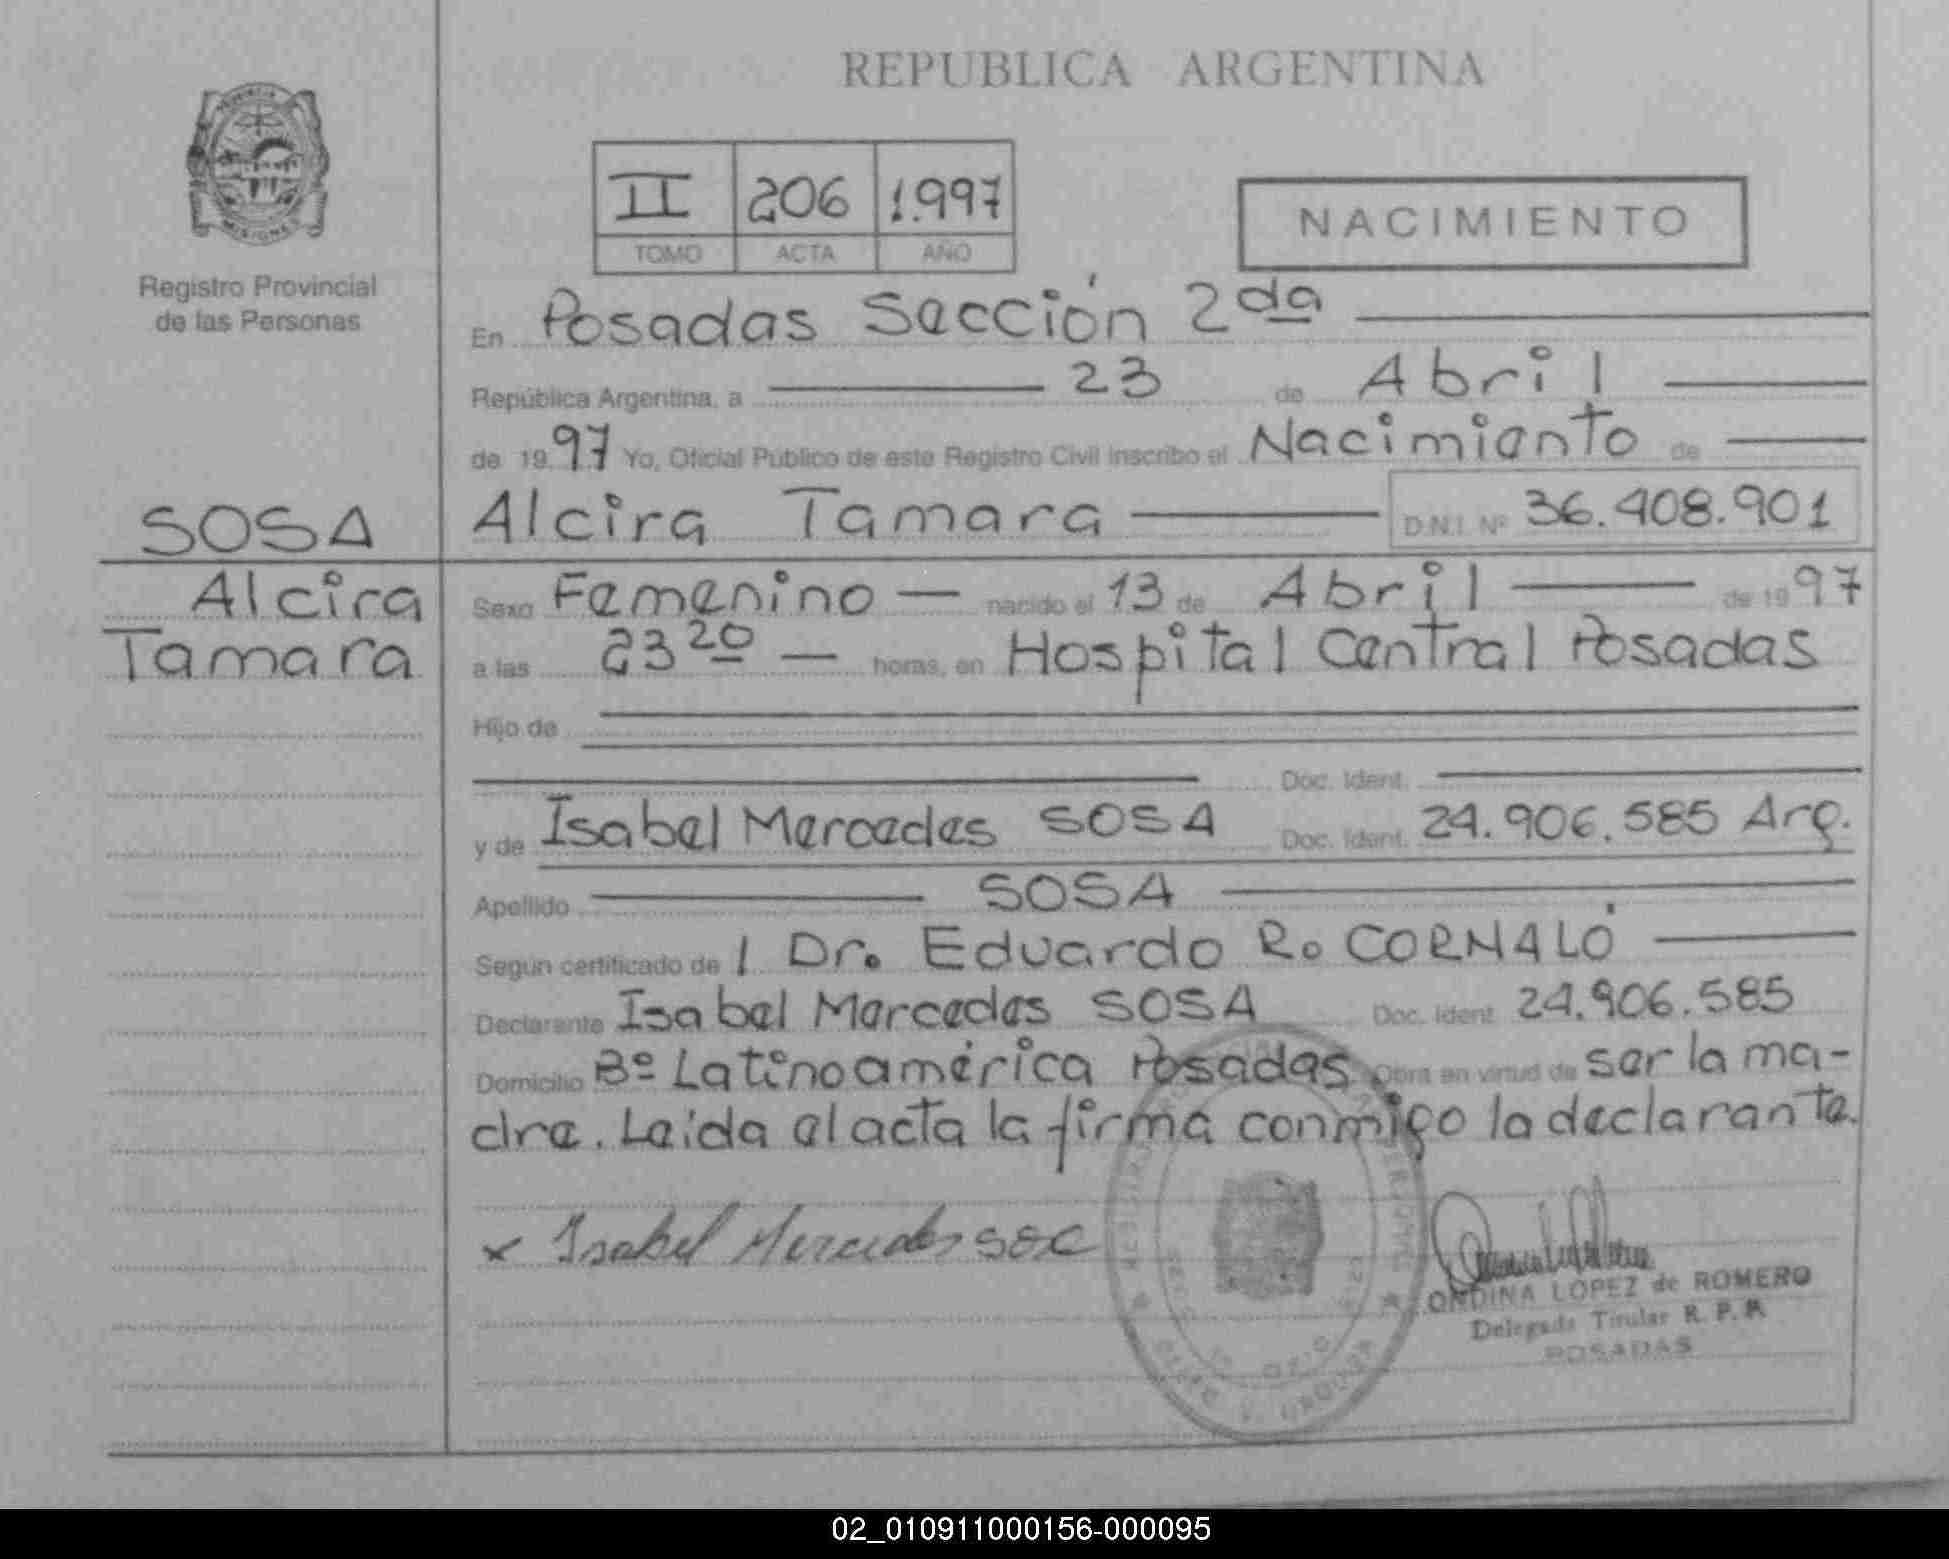 REPUBLICA ARGENTINA
II 206 1.997
TOMO ACTA AÑO
NACIMIENTO
PROVINCIA
MISIONES
Registro Provincial
de las Personas
En Posadas Sección 2da
República Argentina, a 23 de Abril
de 1997 Yo, Oficial Público de este Registro Civil inscribo el Nacimiento de
SOSA
Alcira Tamara D.N.I. Nº 36.408.901
Alcira
Tamara
Sexo Femenino nacido el 13 de Abril de 1997
a las 23 20 horas, en Hospital Central Posadas
Hijo de
Doc. Ident.
y de Isabel Mercedes SOSA Doc. Ident. 24.906.585 Arg.
Apellido SOSA
Según certificado de l Dr. Eduardo R. CORNALÓ
Declarante Isabel Mercedes SOSA Doc. Ident. 24.906.585
Domicilio Bº Latinoamérica Posadas. Obra en virtud de ser la ma-
dre. Leida el acta la firma conmigo la declarante.
x Isabel Mercedes
ONDINA LOPEZ de ROMERO
Delegada Titular R. P. P.
POSADAS
02_010911000156-000095